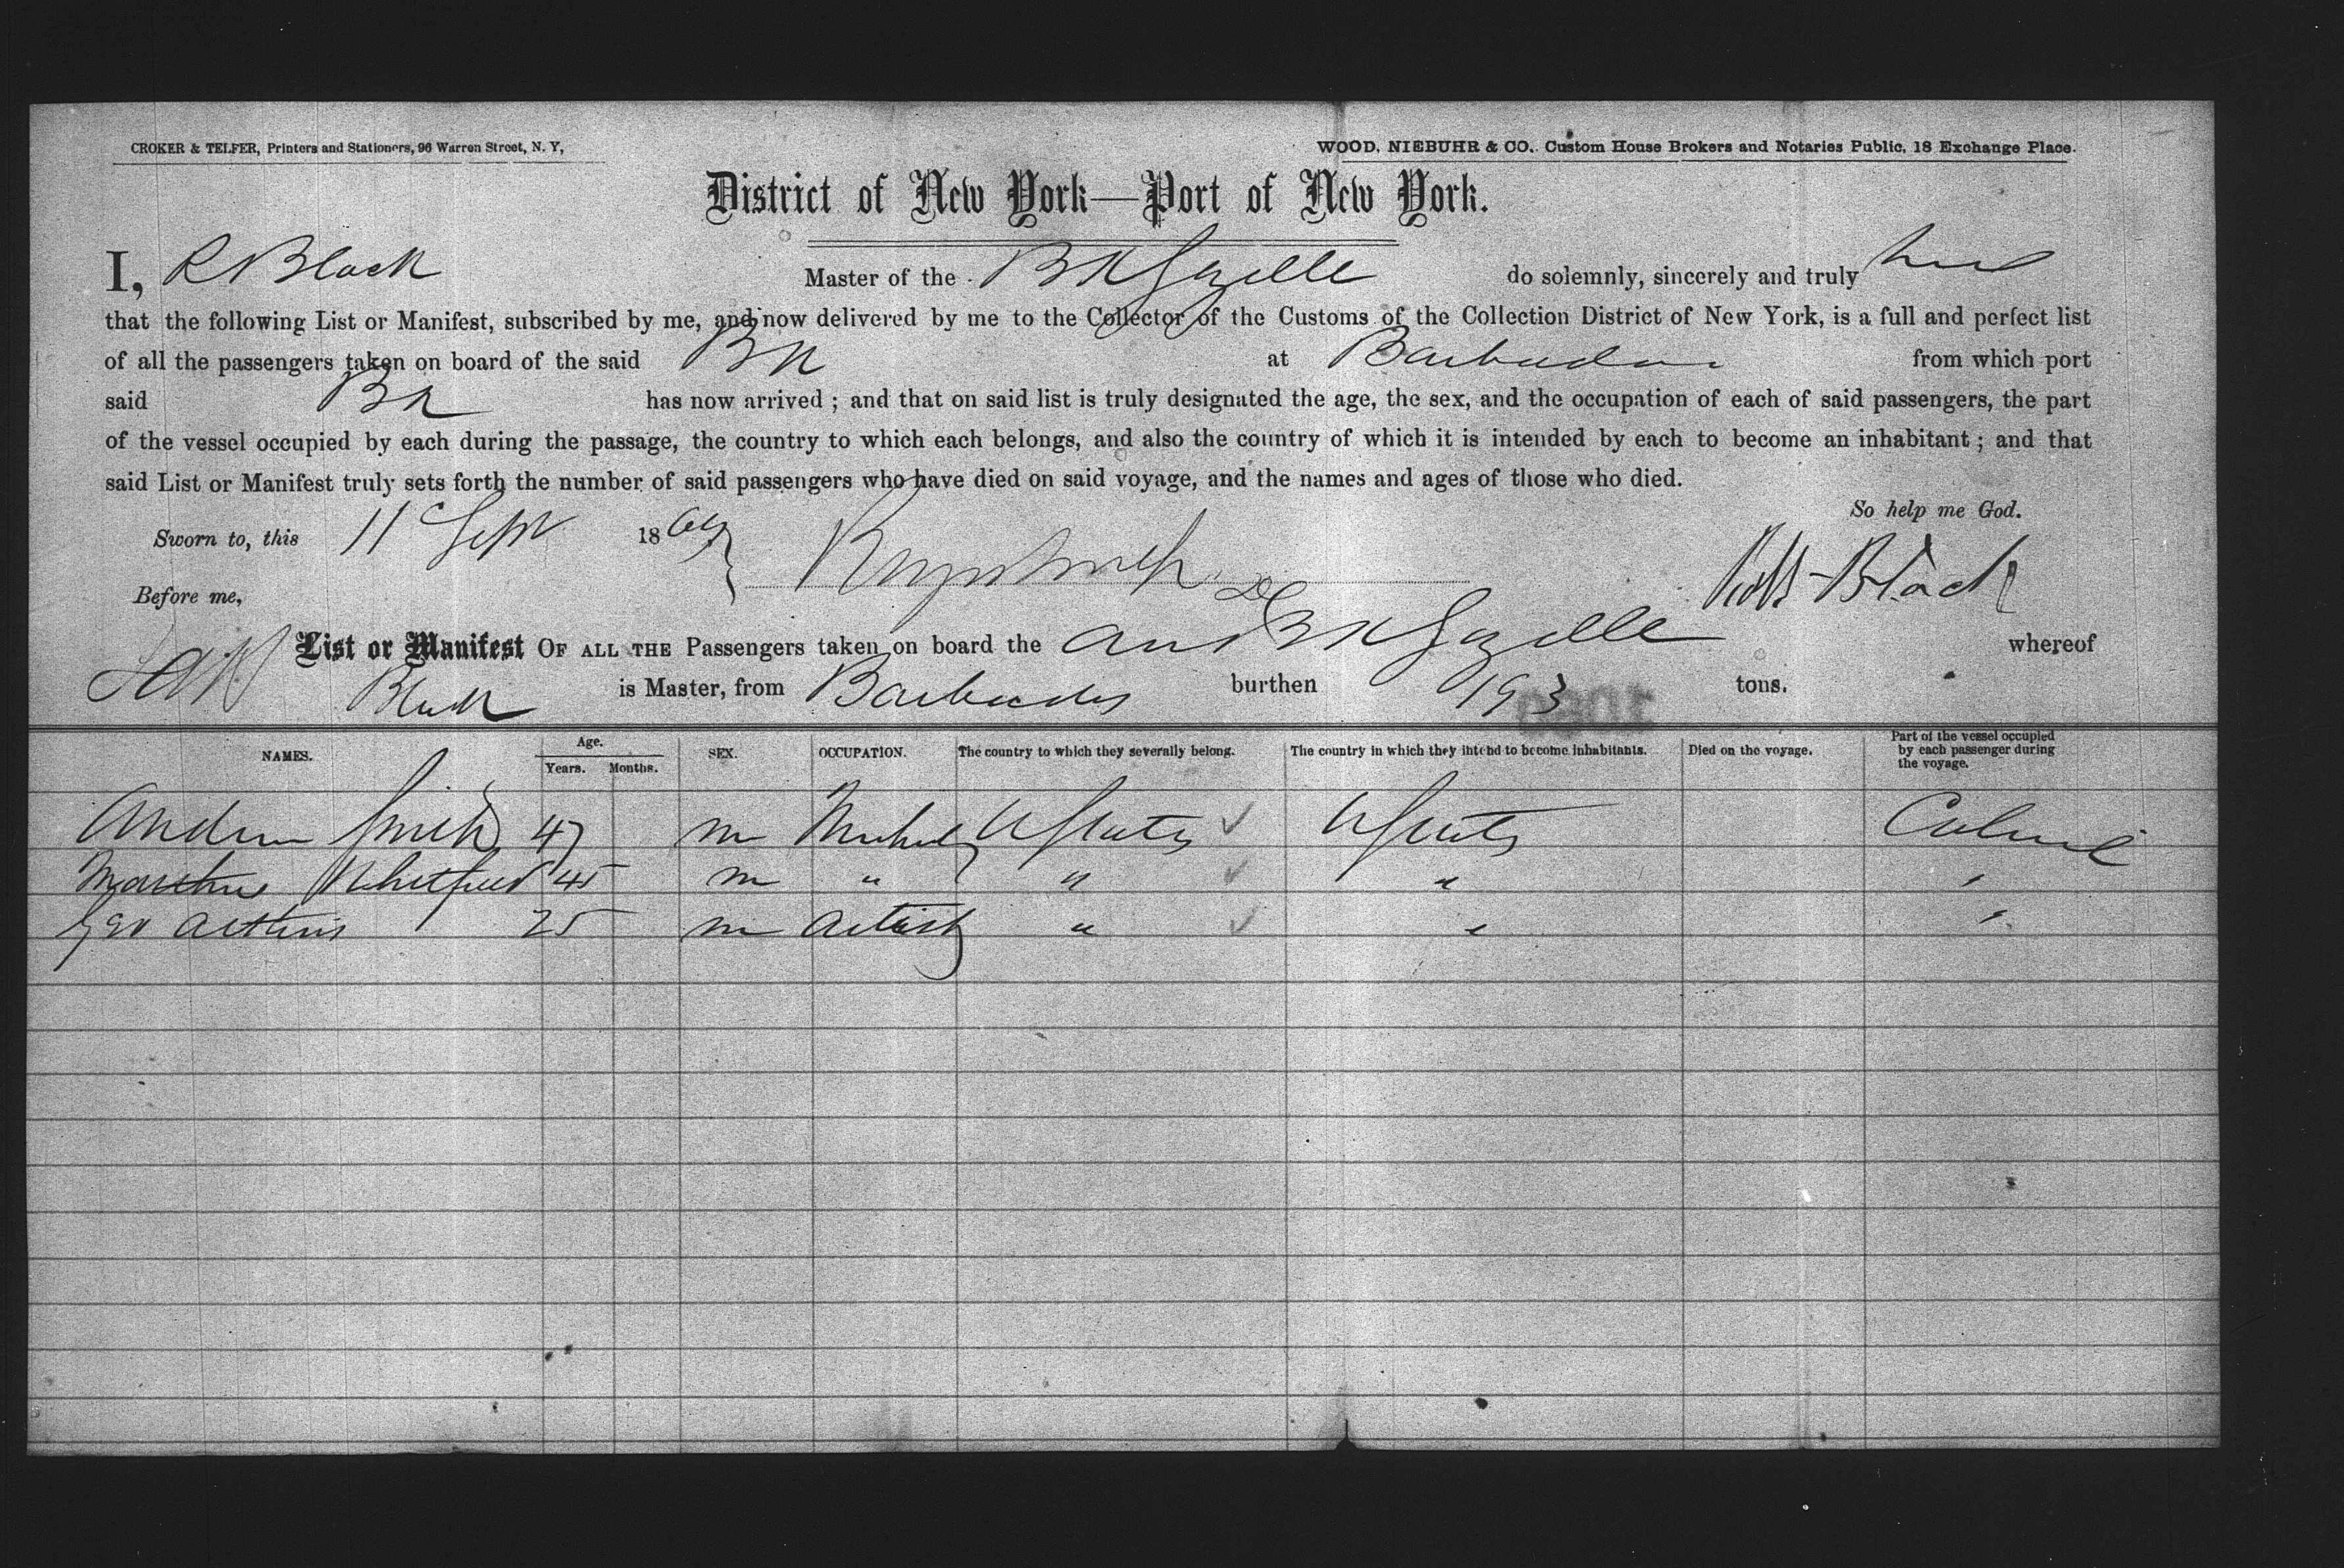 CROKER & TELFER, Printers and Stationers, 96 Warren Street, N. Y,
WOOD, NIEBUHR & CO. Custom House Brokers and Notaries Public, 18 Exchange Place.
District of New York—Port of New York.
I, R Black Master of the Bk Gazelle do solemnly, sincerely and truly
that the following List or Manifest, subscribed by me, and now delivered by me to the Collector of the Customs of the Collection District of New York, is a full and perfect list
of all the passengers taken on board of the said Bk at Barbados from which port
said Bk has now arrived ; and that on said list is truly designated the age, the sex, and the occupation of each of said passengers, the part
of the vessel occupied by each during the passage, the country to which each belongs, and also the country of which it is intended by each to become an inhabitant ; and that
said List or Manifest truly sets forth the number of said passengers who have died on said voyage, and the names and ages of those who died.
So help me God.
Sworn to, this 11 Sept 1869
Robt Black
Before me,
List or Manifest OF ALL THE Passengers taken on board the Am Bk Gazelle whereof
Black is Master, from Barbados burthen 193 tons.
NAMES. Age. Years. Months. SEX. OCCUPATION. The country to which they severally belong. The country in which they intend to become inhabitants. Died on the voyage. Part of the vessel occupied by each passenger during the voyage.
Andrew Smith 47 m U States U States Cabin
Whitfield 45 m " " " "
Geo 25 m Artist " " "